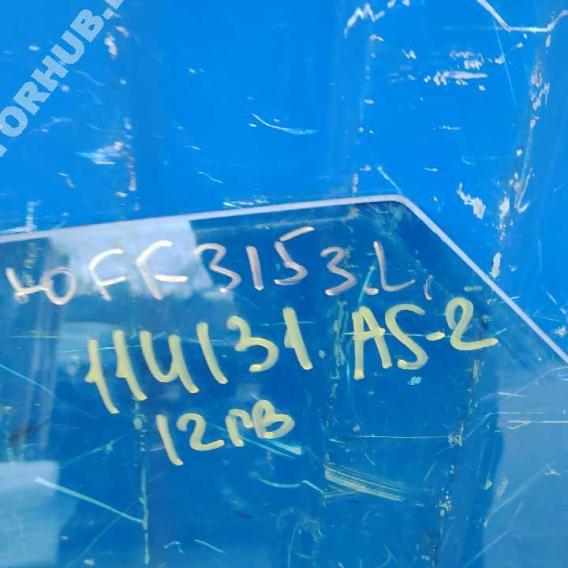 TORHUB.
ЮFF 3153.L,
114131 AS-2
12ПВ